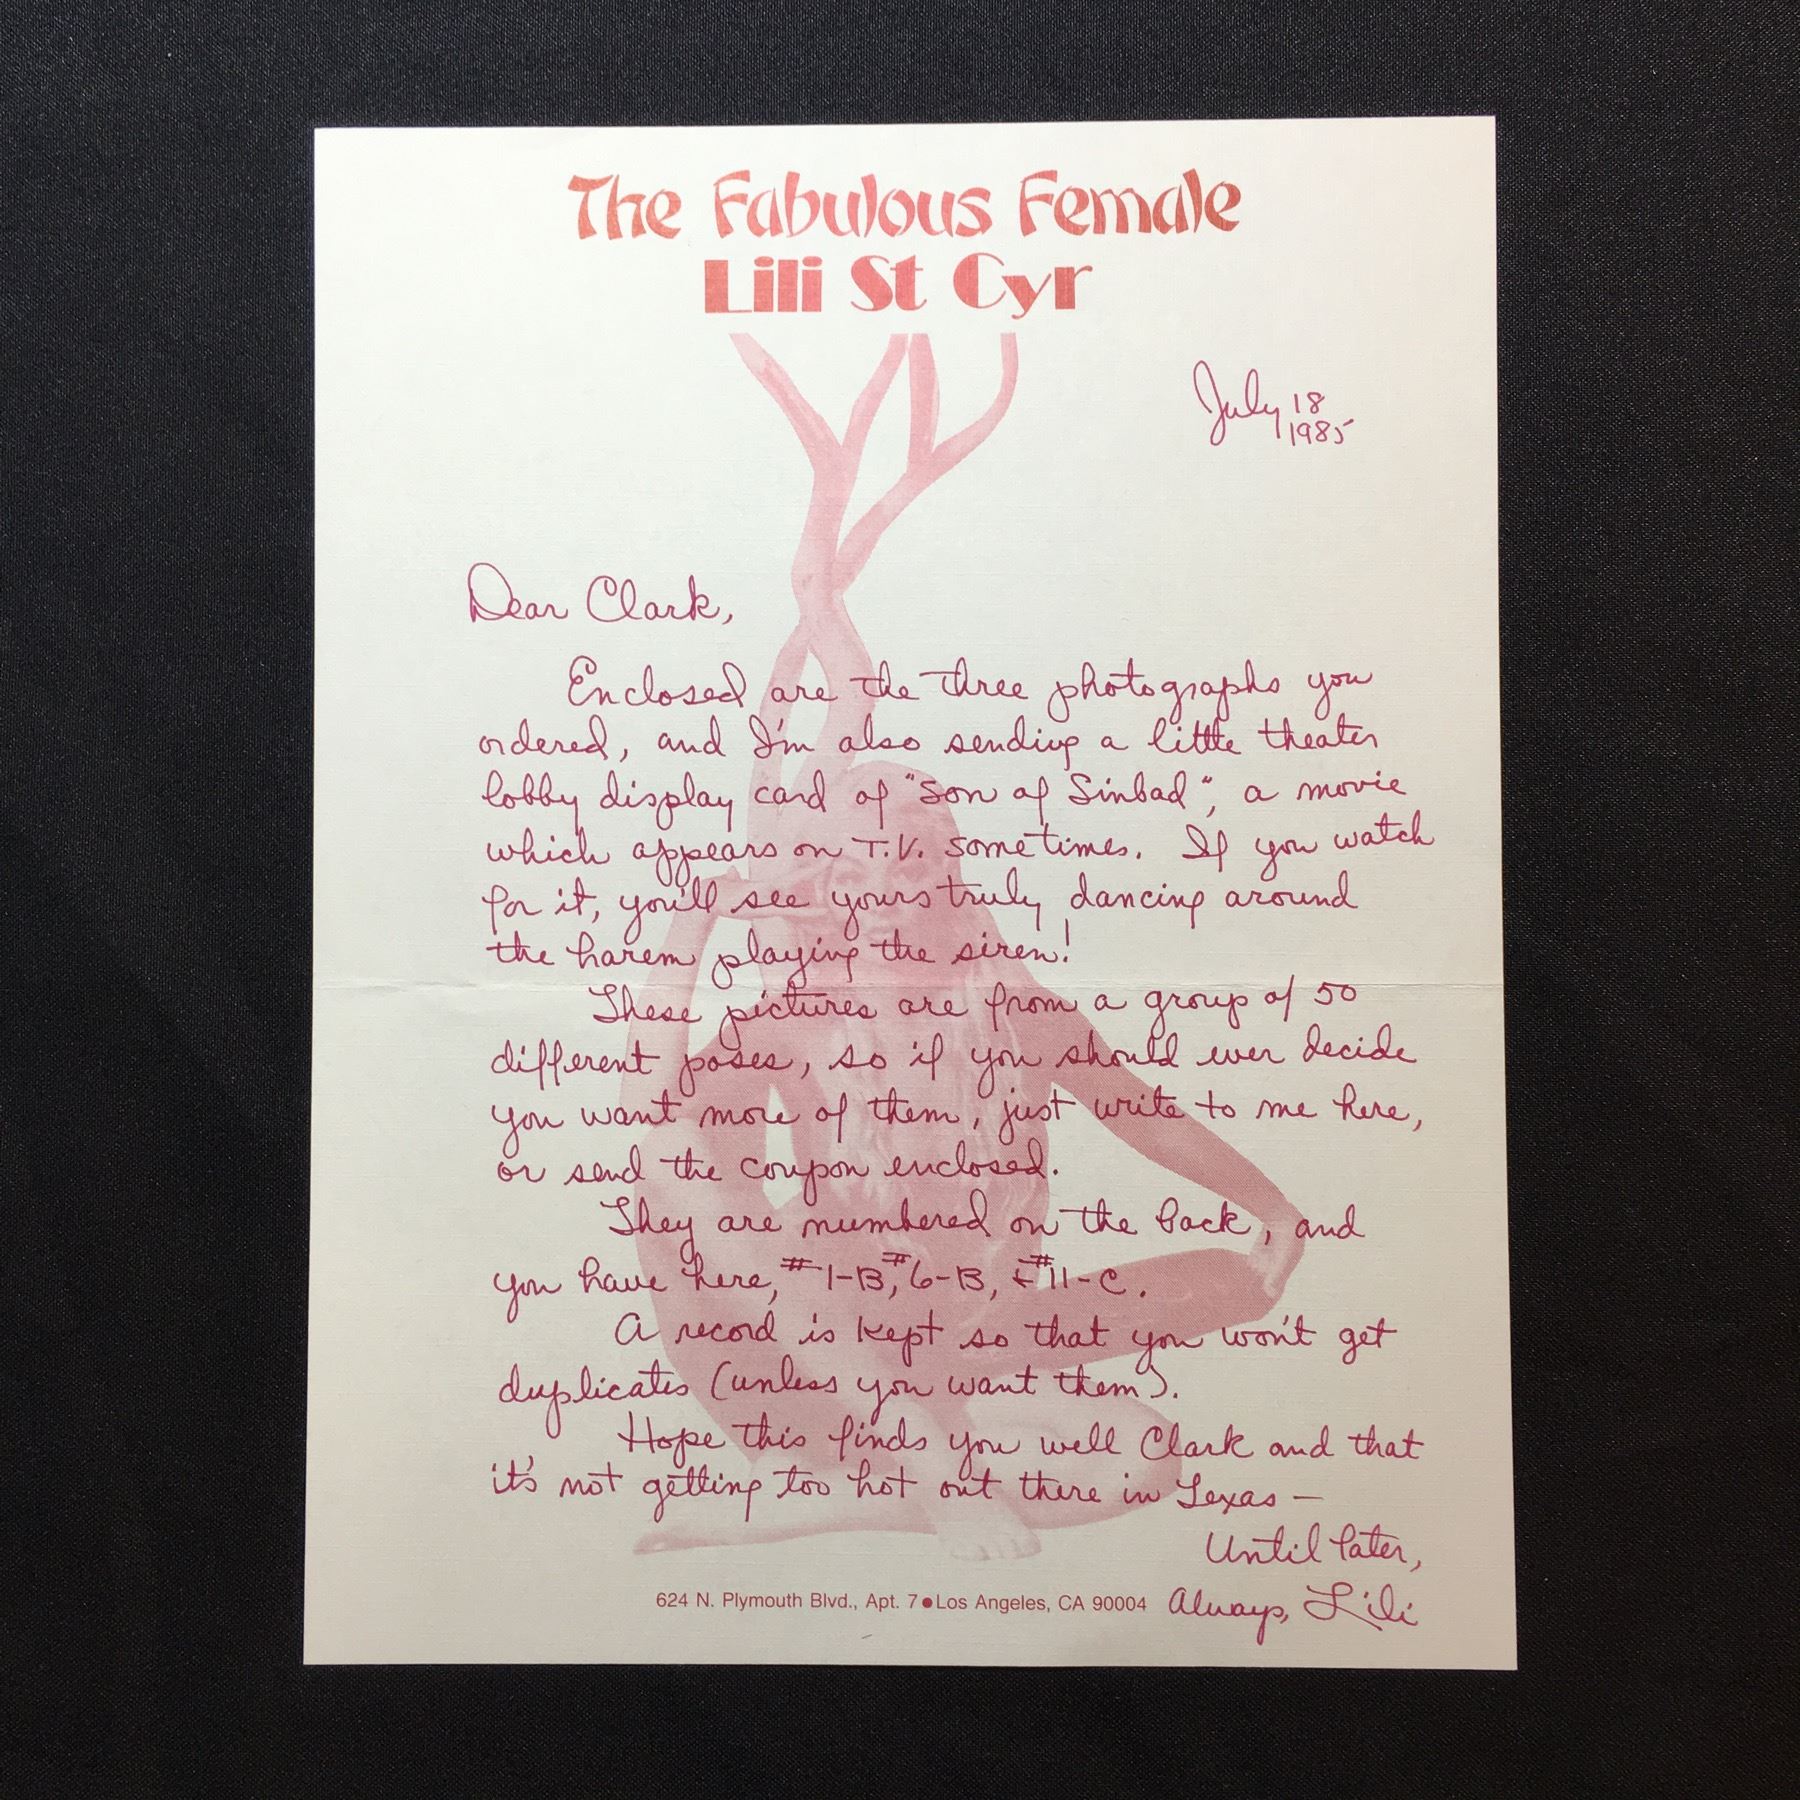 The Fabulous Female
Lili St Cyr
July 18
1985
Dear Clark,
Enclosed are the three photographs you
ordered, and I'm also sending a little theater
lobby display card of "Son of Sinbad", a movie
which appears on T.V. sometimes. If you watch
for it, you'll see yours truly dancing around
the harem playing the siren!
These pictures are from a group of 50
different poses, so if you should ever decide
you want more of them, just write to me here,
or send the coupon enclosed.
They are numbered on the back, and
you have here, #1-B, #6-B, & #11-C.
A record is kept so that you won't get
duplicates (unless you want them).
Hope this finds you well Clark and that
it's not getting too hot out there in Texas —
Until later,
Always, Lili
624 N. Plymouth Blvd., Apt. 7 • Los Angeles, CA 90004